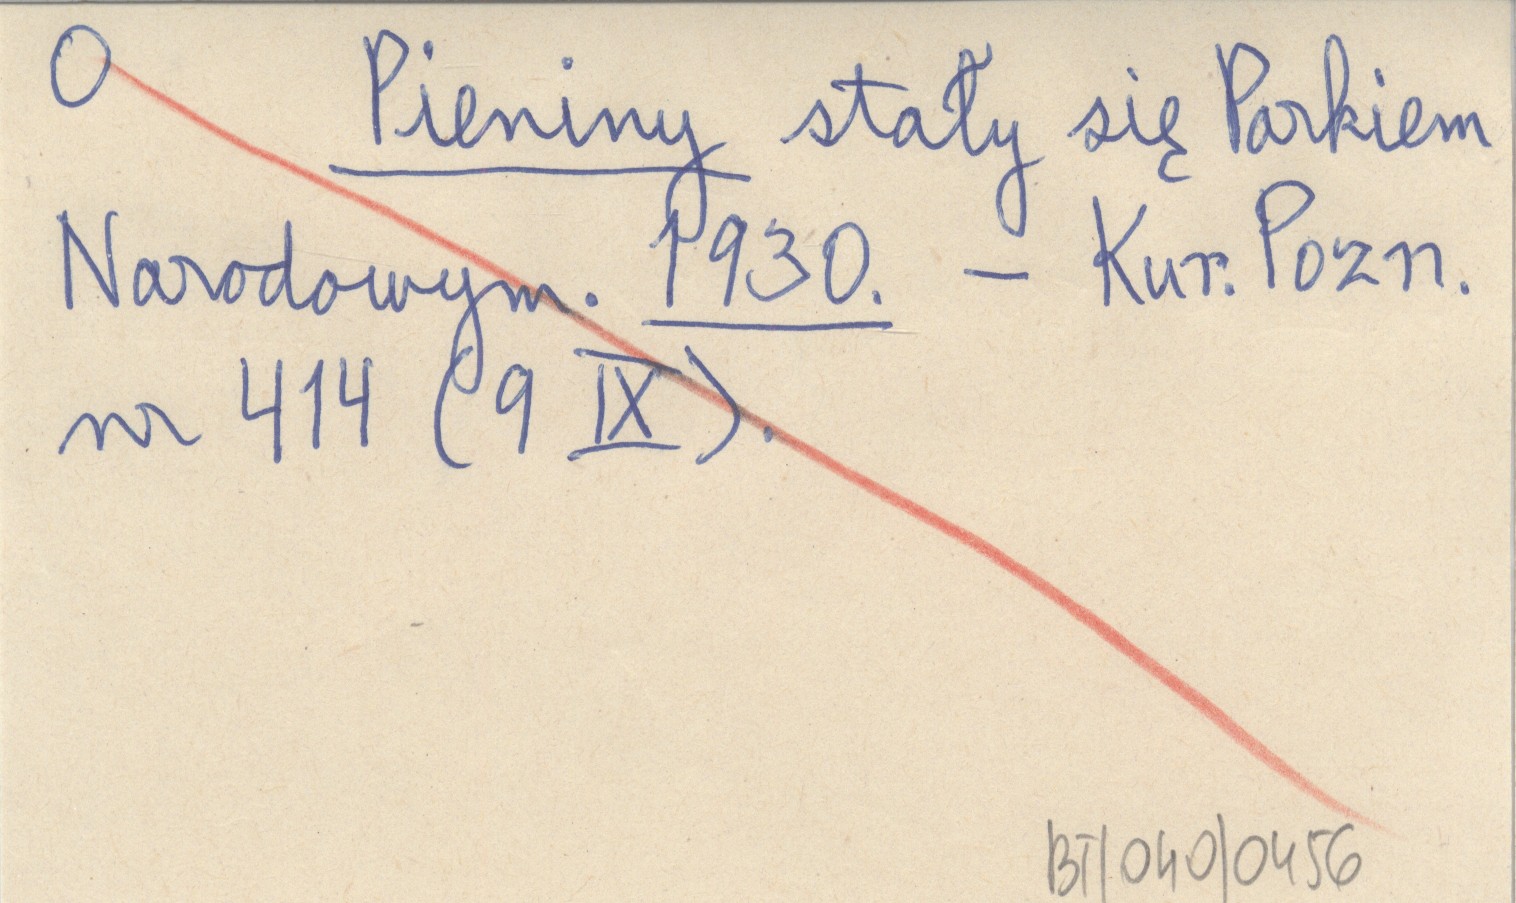 O Pieniny stały się Parkiem
Narodowym. 1930. - Kur. Pozn.
nr 414 (9 IX).
BT/040/0456